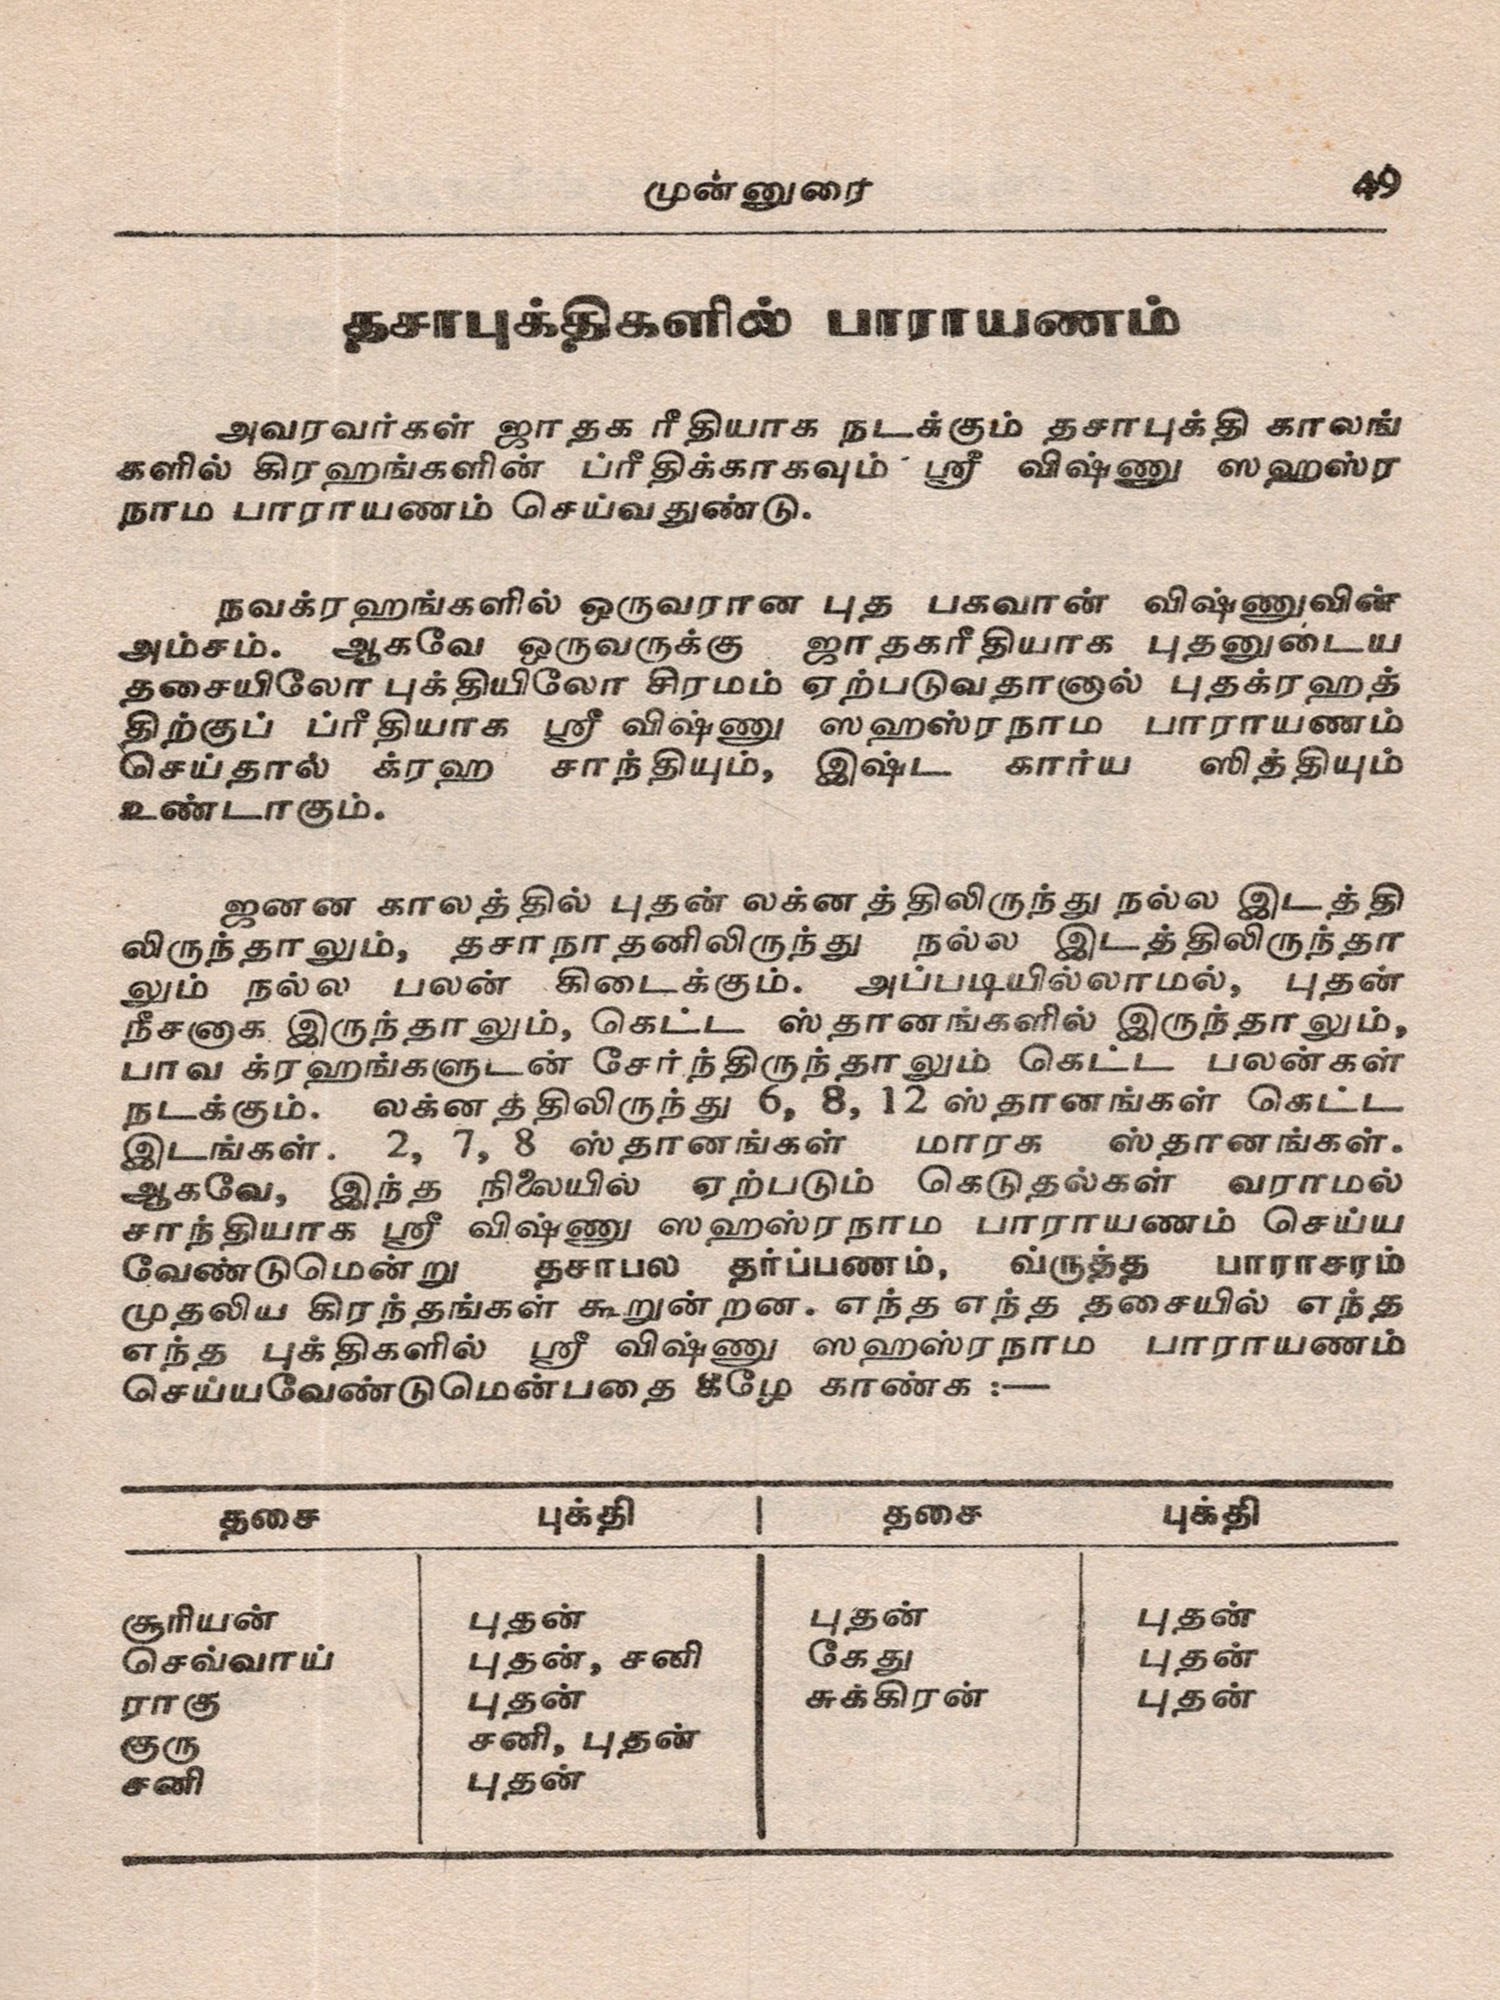 முன்னுரை 49
தசாபுக்திகளில் பாராயணம்
அவரவர்கள் ஜாதக ரீதியாக நடக்கும் தசாபுக்தி காலங்
களில் கிரஹங்களின் ப்ரீதிக்காகவும் ஸ்ரீ விஷ்ணு ஸஹஸ்ர
நாம பாராயணம் செய்வதுண்டு.
நவக்ரஹங்களில் ஒருவரான புத பகவான் விஷ்ணுவின்
அம்சம். ஆகவே ஒருவருக்கு ஜாதகரீதியாக புதனுடைய
தசையிலோ புக்தியிலோ சிரமம் ஏற்படுவதானால் புதக்ரஹத்
திற்குப் ப்ரீதியாக ஸ்ரீ விஷ்ணு ஸஹஸ்ரநாம பாராயணம்
செய்தால் க்ரஹ சாந்தியும், இஷ்ட கார்ய ஸித்தியும்
உண்டாகும்.
ஜனன காலத்தில் புதன் லக்னத்திலிருந்து நல்ல இடத்தி
லிருந்தாலும், தசாநாதனிலிருந்து நல்ல இடத்திலிருந்தா
லும் நல்ல பலன் கிடைக்கும். அப்படியில்லாமல், புதன்
நீசனாக இருந்தாலும், கெட்ட ஸ்தானங்களில் இருந்தாலும்,
பாவ க்ரஹங்களுடன் சேர்ந்திருந்தாலும் கெட்ட பலன்கள்
நடக்கும். லக்னத்திலிருந்து 6, 8, 12 ஸ்தானங்கள் கெட்ட
இடங்கள். 2, 7, 8 ஸ்தானங்கள் மாரக ஸ்தானங்கள்.
ஆகவே, இந்த நிலையில் ஏற்படும் கெடுதல்கள் வராமல்
சாந்தியாக ஸ்ரீ விஷ்ணு ஸஹஸ்ரநாம பாராயணம் செய்ய
வேண்டுமென்று தசாபல தர்ப்பணம், வ்ருத்த பாராசரம்
முதலிய கிரந்தங்கள் கூறுன்றன. எந்த எந்த தசையில் எந்த
எந்த புக்திகளில் ஸ்ரீ விஷ்ணு ஸஹஸ்ரநாம பாராயணம்
செய்யவேண்டுமென்பதை கீழே காண்க :—
தசை புக்தி | தசை புக்தி
சூரியன் புதன் புதன் புதன்
செவ்வாய் புதன், சனி கேது புதன்
ராகு புதன் சுக்கிரன் புதன்
குரு சனி, புதன்
சனி புதன்